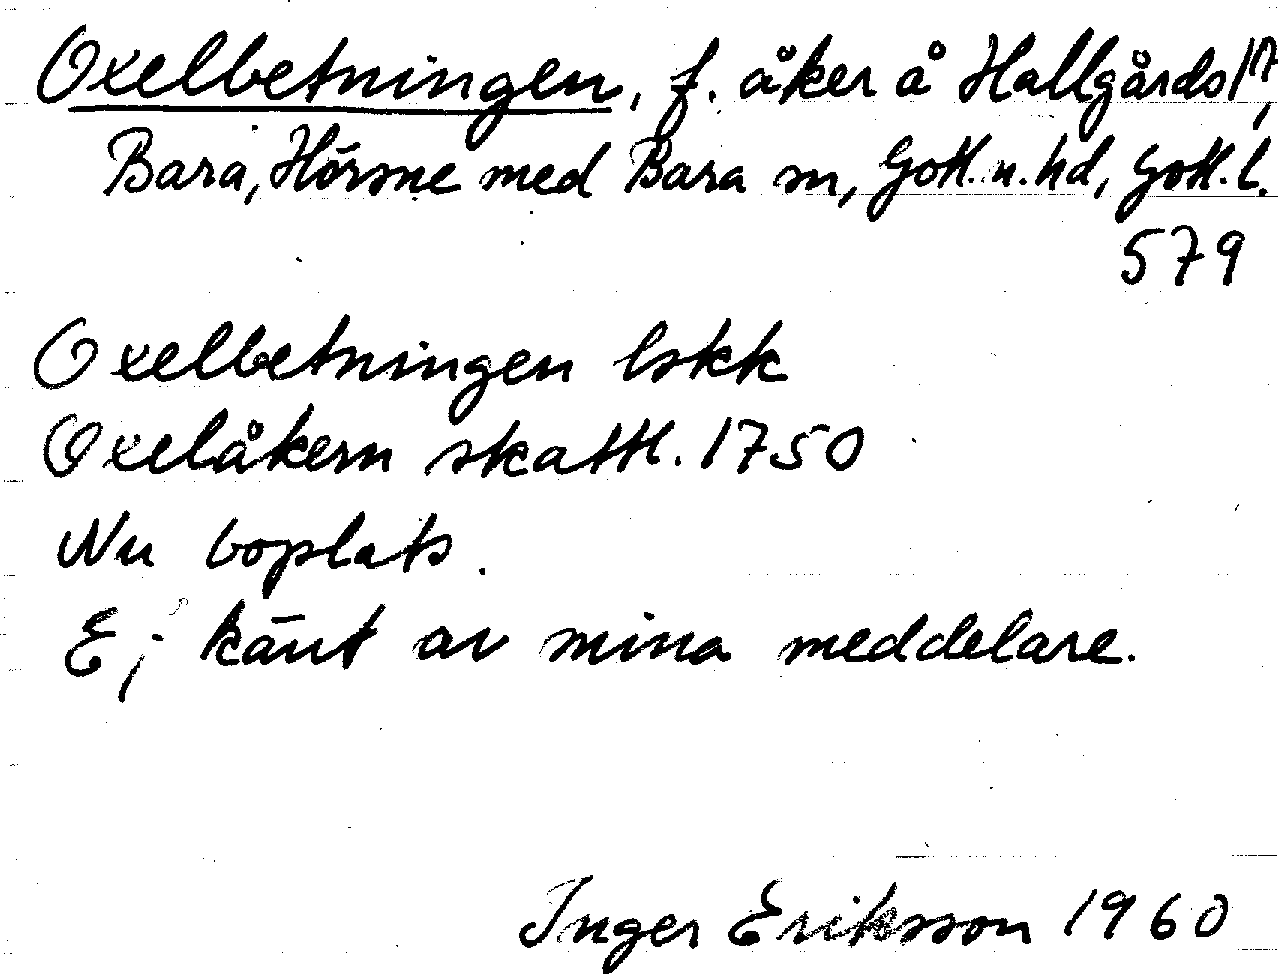 Oxelbetningen, f. åker å Hallgårds 1/17,
Bara, Hörsne med Bara sn, Gotl. n. hd, Gotl. l.
579
Oxelbetningen lskk
Oxelåkern skattl. 1750
Nu boplats.
Ej känt av mina meddelare.
Inger Eriksson 1960